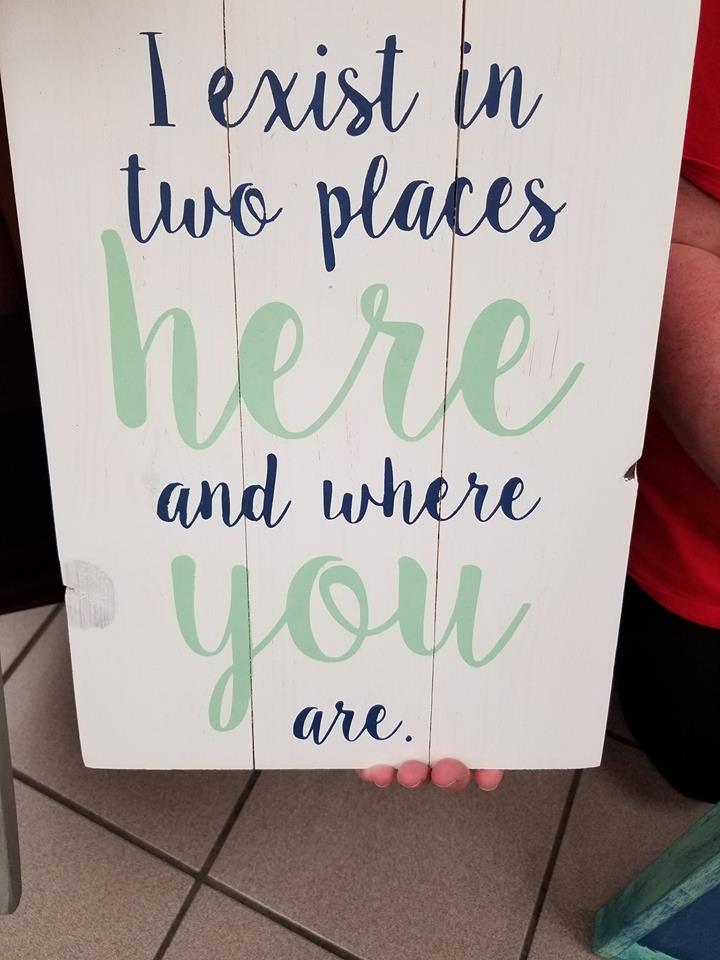 I exist in
two places
here
and where
you
are.